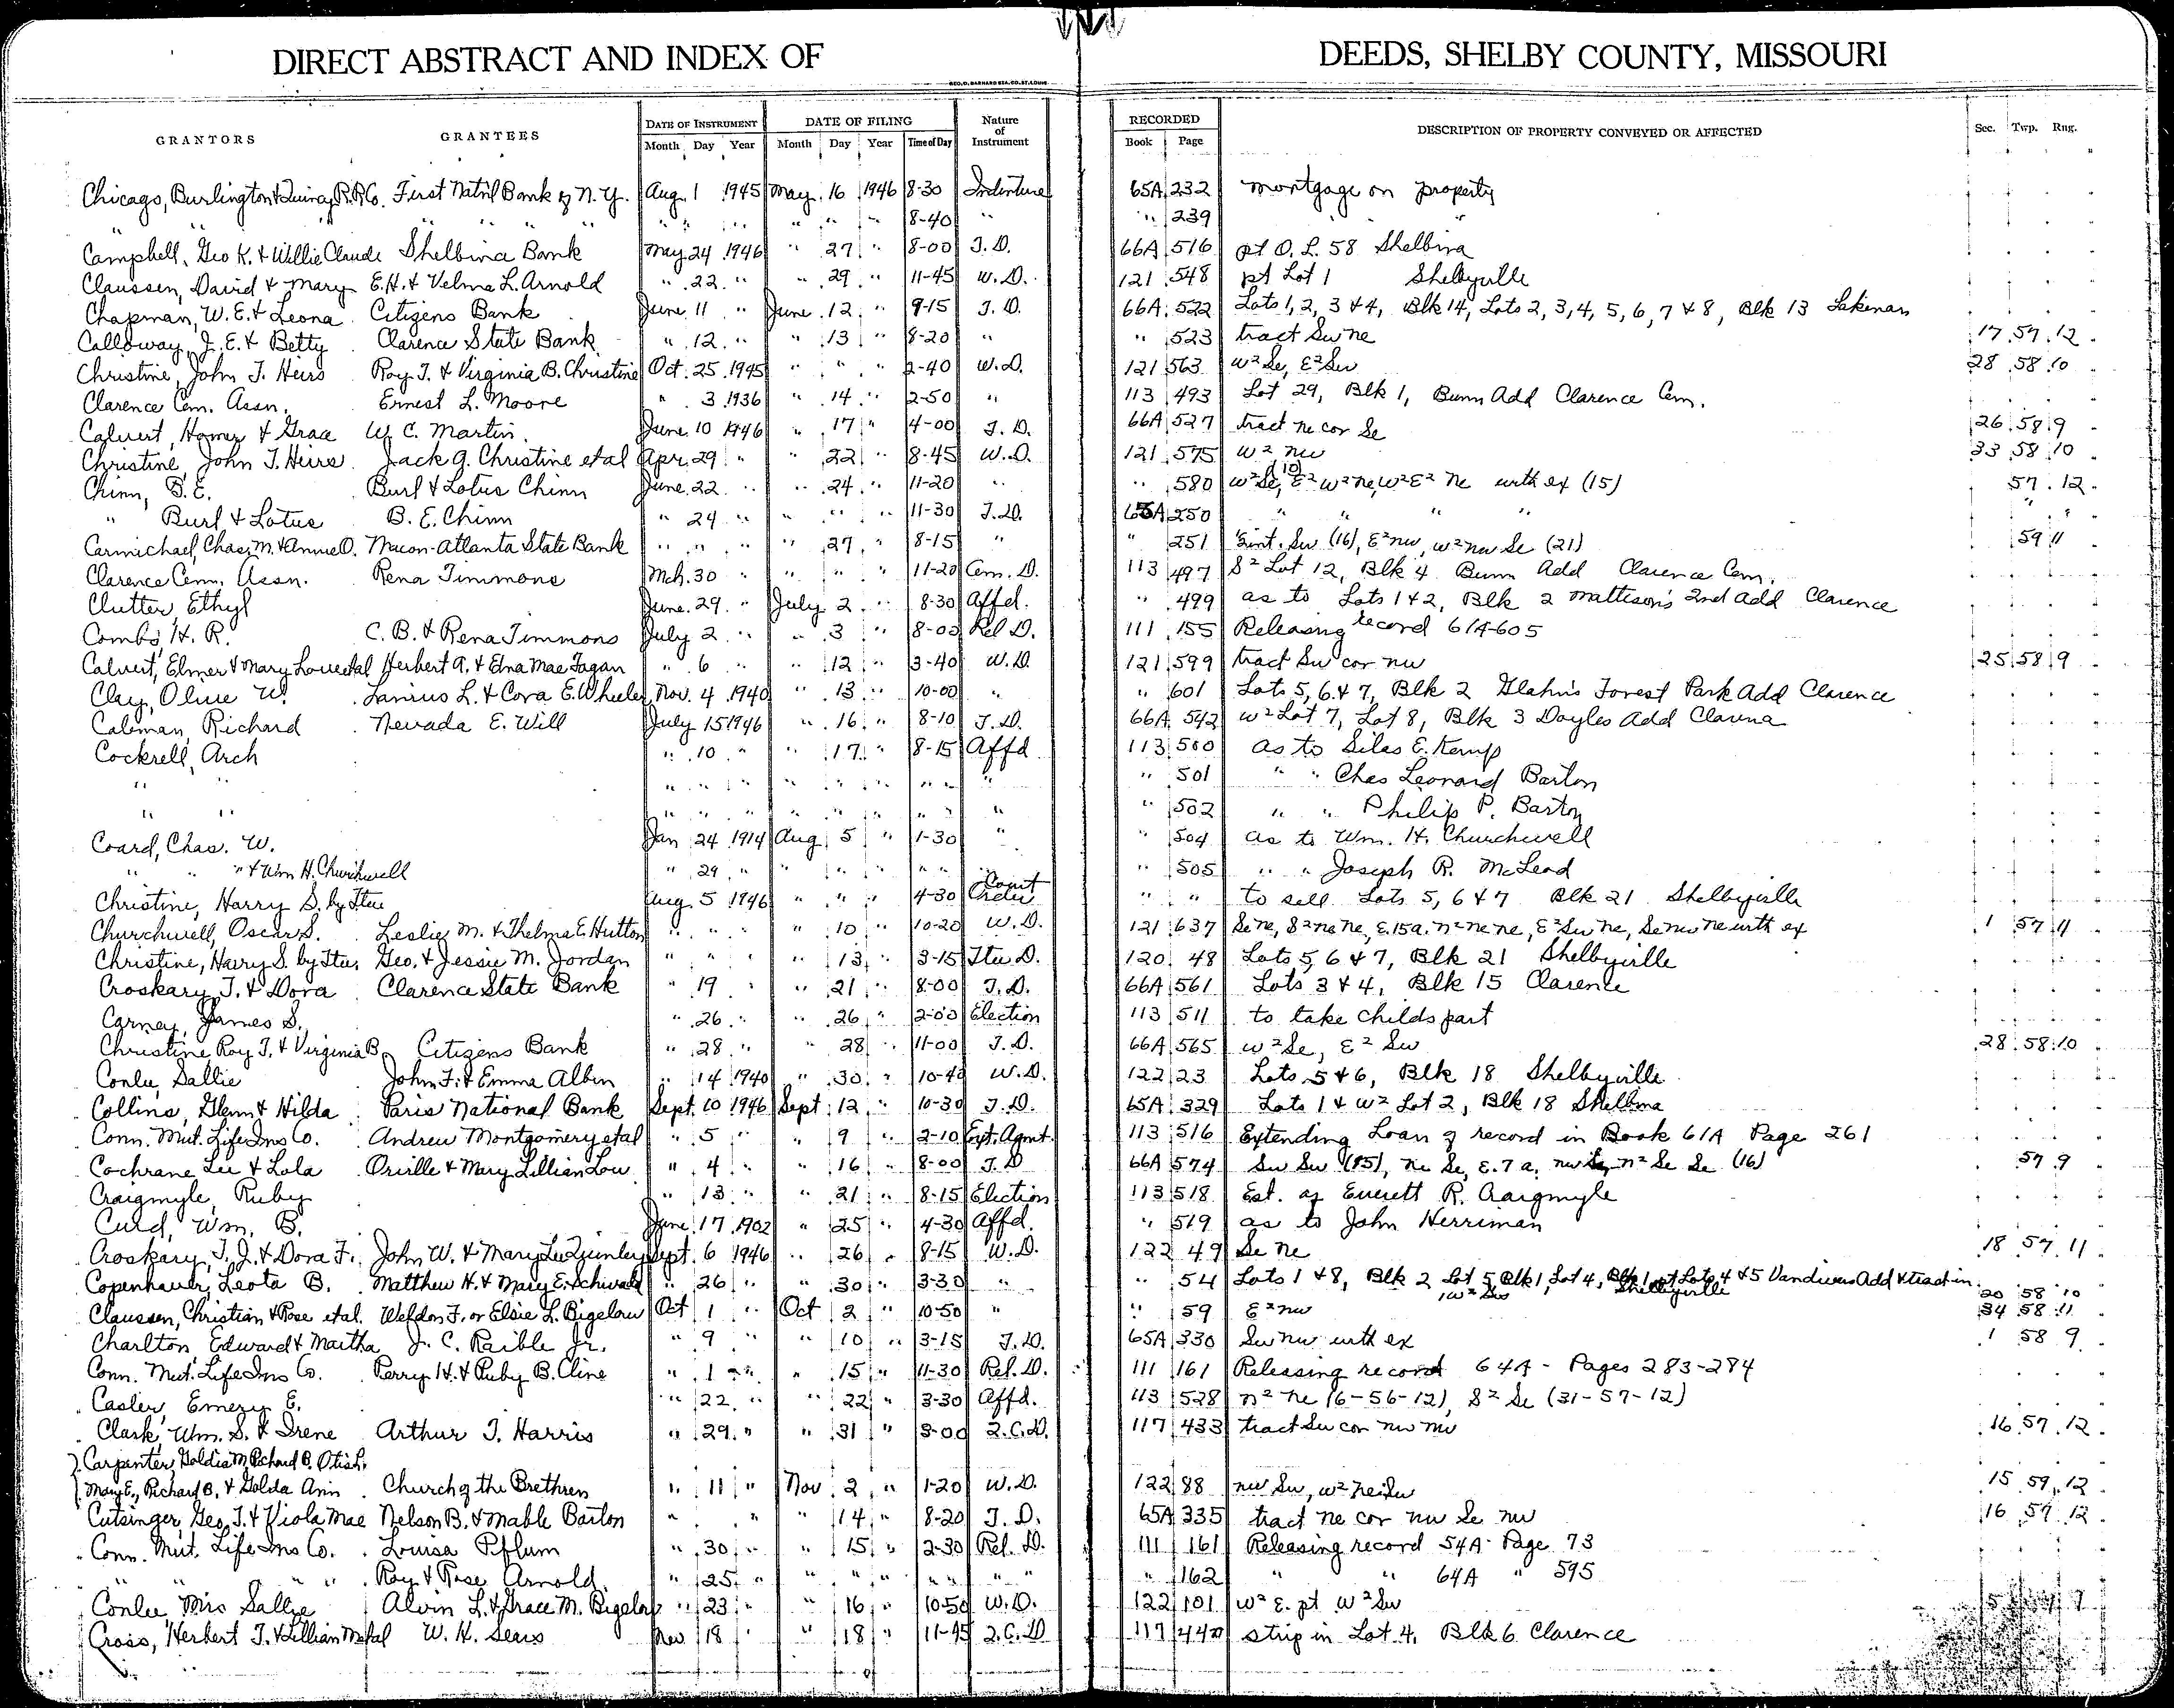 DIRECT ABSTRACT AND INDEX OF DEEDS, SHELBY COUNTY, MISSOURI
GEO. D. BARNARD STA. CO. ST. LOUIS
GRANTORS GRANTEES DATE OF INSTRUMENT DATE OF FILING Nature of Instrument RECORDED DESCRIPTION OF PROPERTY CONVEYED OR AFFECTED Sec. Twp. Rng.
Month Day Year Month Day Year Time of Day Book Page
Chicago, Burlington & Quincy R.R. Co. First Nat'l Bank of N.Y. Aug. 1 1945 May 16 1946 8-30 Indenture 65A 232 mortgage on property
" " " " " " " " " " " 8-40 " " 239 " "
Campbell, Geo K. & Willie Claude Shelbina Bank May 24 1946 " 27 " 8-00 T.D. 66A 516 pt O.L. 58 Shelbina
Claussen, David & Mary E.H. & Velma L. Arnold " 22 " " 29 " 11-45 W.D. 121 548 pt Lot 1 Shelbyville
Chapman, W.E. & Leona Citizens Bank June 11 " June 12 " 9-15 T.D. 66A 522 Lots 1, 2, 3 & 4, Blk 14, Lots 2, 3, 4, 5, 6, 7 & 8, Blk 13 Lakenan
Calloway, J.E. & Betty Clarence State Bank " 12 " " 13 " 8-20 " " 523 tract Sw ne 17 57 12
Christine, John T. Heirs Roy T. & Virginia B. Christine Oct. 25 1945 " " " 2-40 W.D. 121 563 W² Se, E² Sw 28 58 10
Clarence Cem. Assn. Ernest L. Moore " 3 1936 " 14 " 2-50 " 113 493 Lot 29, Blk 1, Bunn Add Clarence Cem.
Calvert, Homer & Grace W.C. Martin June 10 1946 " 17 " 4-00 T.D. 66A 527 tract ne cor Se 26 58 9
Christine, John T. Heirs Jack G. Christine et al Apr. 29 " " 22 " 8-45 W.D. 121 575 W² nw 33 58 10
Chinn, B.E. Burl & Lotus Chinn June 22 " " 24 " 11-20 " " 580 W² Se, (10) E² W² ne, W² E² ne with ex (15) 57 12
" Burl & Lotus B.E. Chinn " 24 " " " " 11-30 T.D. 65A 250 " " " " " "
Carmichael, Chas. M. & Annie O. Macon-Atlanta State Bank " " " " 27 " 8-15 " " 251 Sw (16), E² nw, W² nw Se (21) 59 11
Clarence Cem. Assn. Rena Timmons Mch. 30 " " " " 11-20 Cem. D. 113 497 S² Lot 12, Blk 4 Bunn Add Clarence Cem.
Clutter, Ethyl June 29 " July 2 " 8-30 Affd. " 499 as to Lots 1 & 2, Blk 2 Mattison's 2nd Add Clarence
Combs, H.R. C.B. & Rena Timmons July 2 " " 3 " 8-00 Rel D. 111 155 Releasing record 61A-605
Calvert, Elmer & Mary Lou et al Herbert A. & Edna Mae Fagan " 6 " " 12 " 3-40 W.D. 121 599 tract Sw cor nw 25 58 9
Clay, Olive W. Lanius L. & Cora E. Wheeler Nov. 4 1940 " 13 " 10-00 " " 601 Lots 5, 6 & 7, Blk 2 Glahn's Forest Park Add Clarence
Coleman, Richard Nevada E. Will July 15 1946 " 16 " 8-10 T.D. 66A 542 W² Lot 7, Lot 8, Blk 3 Doyles Add
Cockrell, Arch " 10 " " 17 " 8-15 Affd 113 500 as to Silas E. Kemp
" " " " " " " " " " " 501 " " Chas Leonard Barton
" " " " " " " " " " " 502 " " Philip P. Barton
Coard, Chas. W. Jan 24 1914 Aug 5 " 1-30 " " 504 as to Wm. H. Churchwell
" " " & Wm H. Churchwell " 29 " " " " " " " " 505 " " Joseph R. McLeod
Christine, Harry S. by Ttee Aug. 5 1946 " " " 4-30 Court Order " " to sell Lots 5, 6 & 7 Blk 21 Shelbyville
Churchwell, Oscar S. Leslie M. & Thelma E. Hutton " " " " 10 " 10-20 W.D. 121 637 Se ne, S² ne ne, E. 15a. n² ne ne, E² Sw ne, Se nw ne with ex 1 57 11
Christine, Harry S. by Ttee. Geo. & Jessie M. Jordan " " " " 13 " 3-15 Ttee D. 120 48 Lots 5, 6 & 7, Blk 21 Shelbyville
Croskary, T. & Dora Clarence State Bank " 19 " " 21 " 8-00 T.D. 66A 561 Lots 3 & 4, Blk 15 Clarence
Carney, James S. " 26 " " 26 " 2-00 Election 113 511 to take childs part
Christine, Roy T. & Virginia B. Citizens Bank " 28 " " 28 " 11-00 T.D. 66A 565 W² Se, E² Sw 28 58 10
Conlee, Sallie John F. & Emma Albin " 14 1940 " 30 " 10-40 W.D. 122 23 Lots 5 & 6, Blk 18 Shelbyville
Collins, Glenn & Hilda Paris National Bank Sept. 10 1946 Sept 12 " 10-30 T.D. 65A 329 Lots 1 & W² Lot 2, Blk 18 Shelbina
Conn. Mut. Life Ins Co. Andrew Montgomery et al " 5 " " 9 " 2-10 Ext. Agmt. 113 516 Extending Loan of record in Book 61A Page 261
Cochrane, Lee & Lola Orville & Mary Lillian Low " 4 " " 16 " 8-00 T.D. 66A 574 Sw Sw (15), ne Se, E. 7 a, nw Se, n² Se Se (16) 57 9
Craigmyle, Ruby " 13 " " 21 " 8-15 Election 113 518 Est. of Everett R. Craigmyle
Curd, Wm. B. June 17 1902 " 25 " 4-30 Affd. " 519 as to John Herriman
Croskary, T.J. & Dora F. John W. & Mary Lee Quinley Sept. 6 1946 " 26 " 8-15 W.D. 122 49 Se ne 18 57 11
Copenhaver, Leota B. Matthew H. & Mary E. Schwada " 26 " " 30 " 3-30 " " 54 Lots 1 & 8, Blk 2 Lot 5 Blk 1, Lot 4, Blk 1 pt Lots 4 & 5 Vandivers Add & tract in W² Sw Shelbyville 20 58 10
Claussen, Christian & Rose et al. Weldon F. or Elsie L. Bigelow Oct 1 " Oct 2 " 10-50 " " 59 E² nw 34 58 11
Charlton, Edward & Martha J.C. Raible Jr. " 9 " " 10 " 3-15 T.D. 65A 330 Sw nw with ex 1 58 9
Conn. Mut. Life Ins Co. Perry H. & Ruby B. Cline " 1 " " 15 " 11-30 Rel. D. 111 161 Releasing record 64A - Pages 283-284
Casler, Emery E. " 22 " " 22 " 3-30 Affd. 113 528 n² ne (6-56-12), S² Se (31-57-12)
Clark, Wm. S. & Irene Arthur T. Harris " 29 " " 31 " 3-00 Q.C.D. 117 433 tract Sw cor nw nw 16 57 12
Carpenter, Goldia M, Richard B. Otis L.
Mary E., Richard B. & Golda Ann Church of the Brethren " 11 " Nov 2 " 1-20 W.D. 122 88 nw Sw, W² ne Sw 15 59 12
Cutsinger, Geo. T. & Viola Mae Nelson B. & Mable Barton " " " 14 " 8-20 T.D. 65A 335 tract ne cor nw Se nw 16 57 12
Conn. Mut. Life Ins Co. Louisa Pflum " 30 " " 15 " 2-30 Rel. D. 111 161 Releasing record 54A - Page 73
" " " " Roy & Rose Arnold " 25 " " " " " " " " " 162 " " 64A " 595
Conlee, Mrs Sallie Alvin L. & Grace M. Bigelow " 23 " " 16 " 10-50 W.D. 122 101 W² E. pt W² Sw
Cross, Herbert T. & Lillian M et al W.H. Sears Nov 18 " " 18 " 11-45 Q.C.D. 117 strip in Lot 4, Blk 6 Clarence